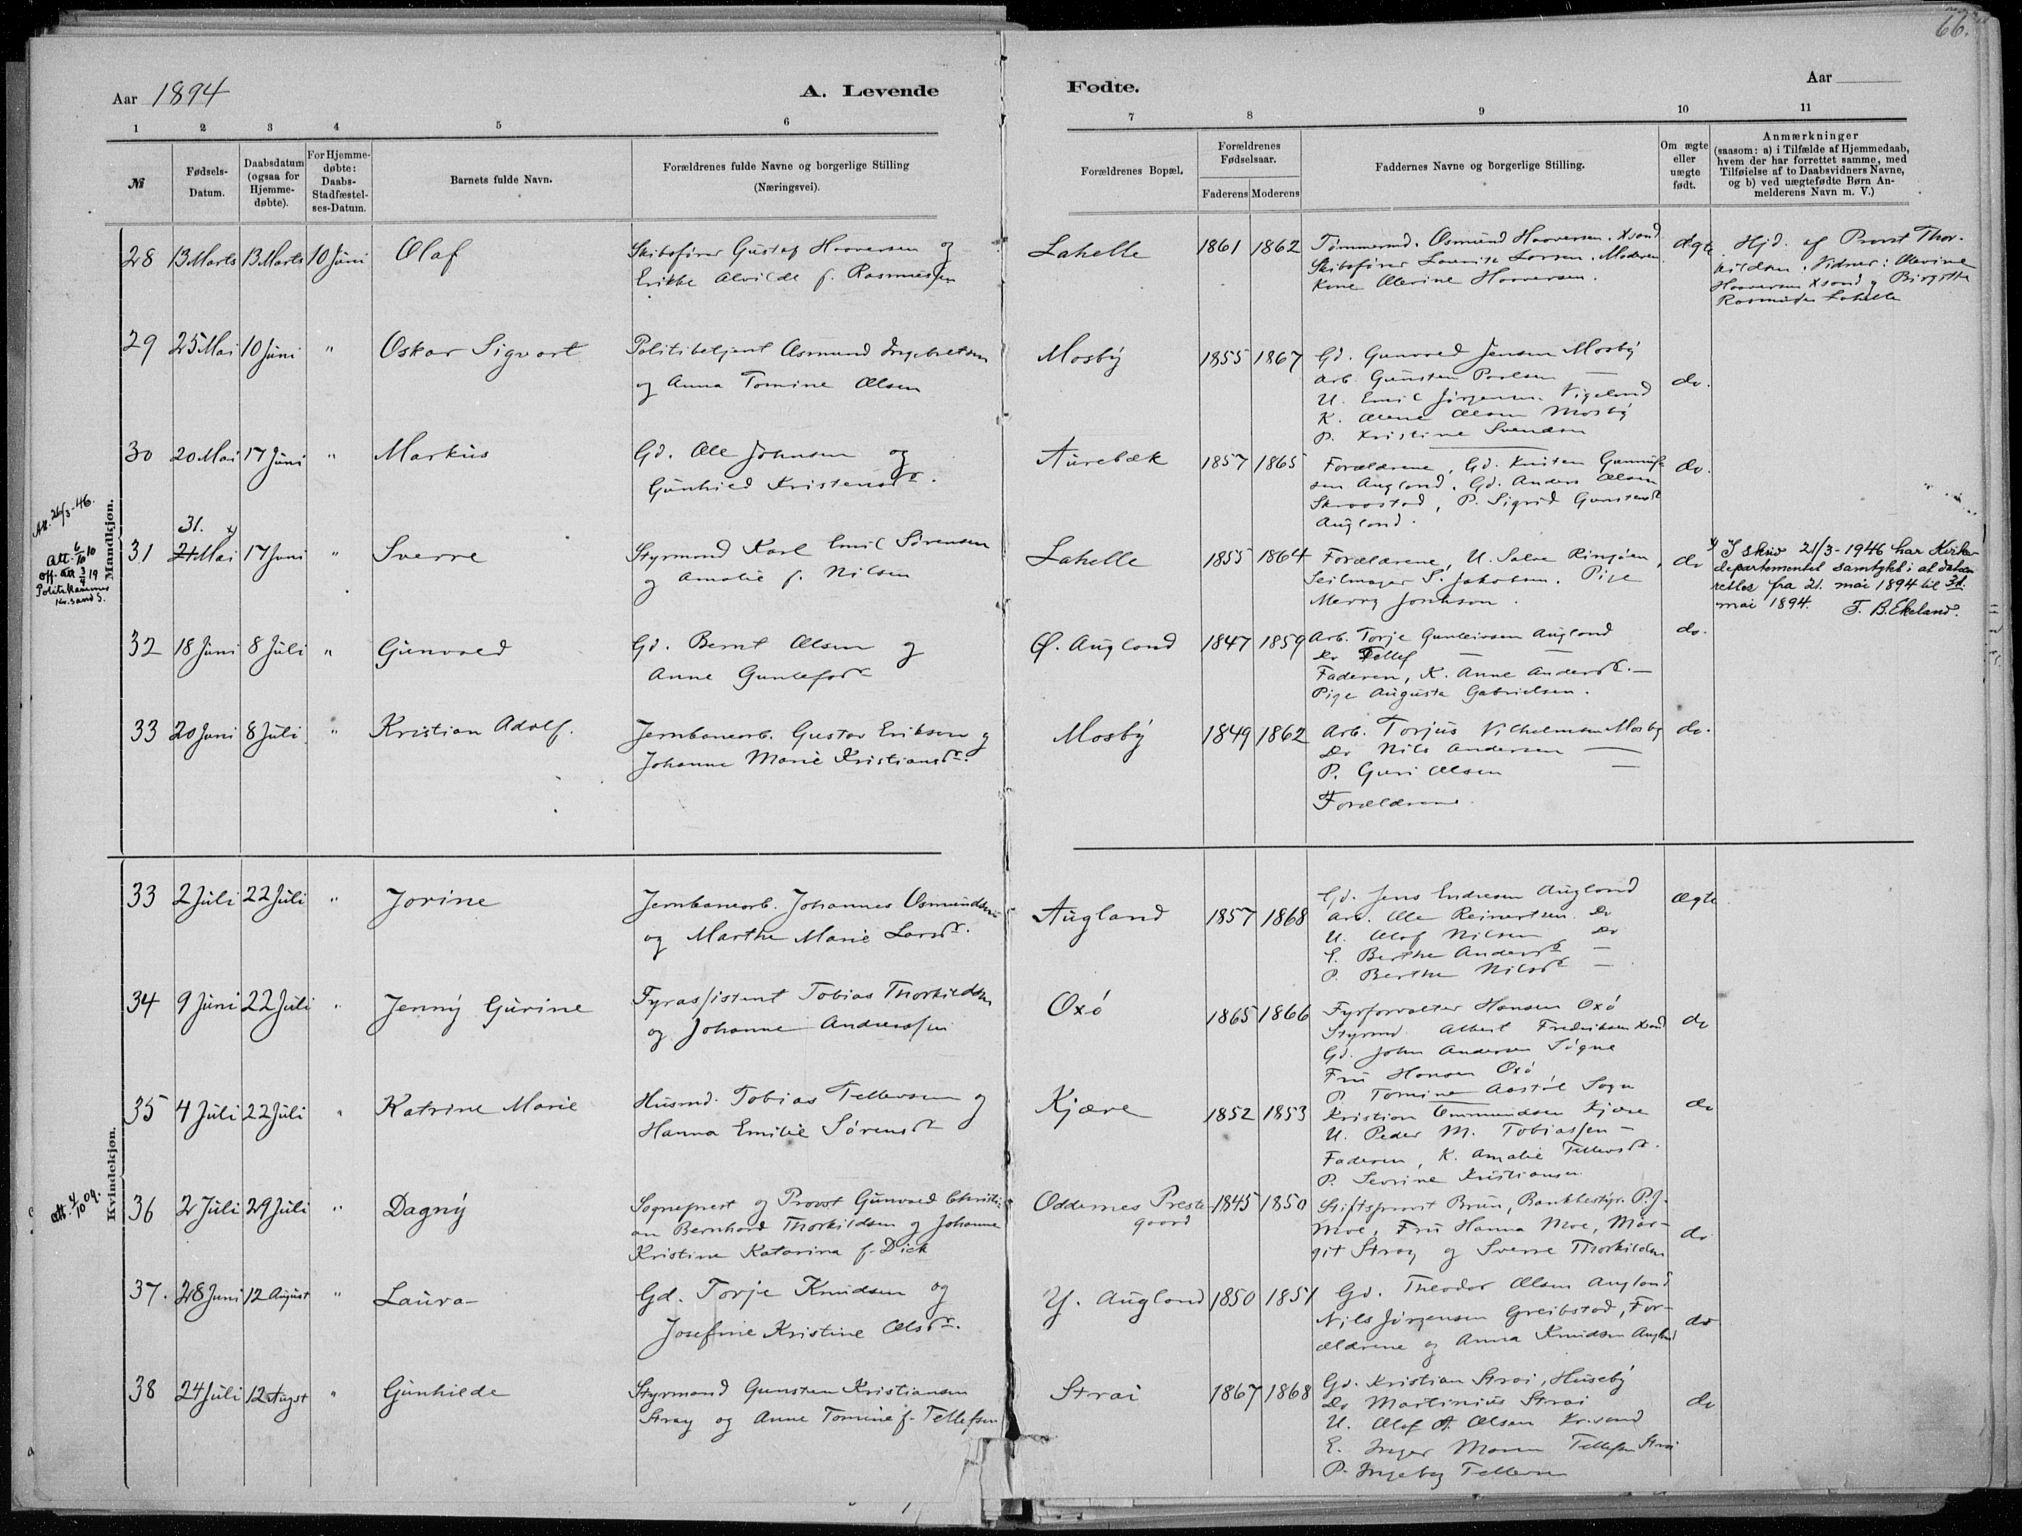 66.
Aar 1894
A. Levende
Fødte.
Aar
1 2 3 4 5 6 7 8 9 10 11
№
Fødsels-
Datum.
Daabsdatum
(ogsaa for
Hjemme-
døbte).
For Hjemme-
døbte:
Daabs-
Stadfæstel-
ses-Datum.
Barnets fulde Navn.
Forældrenes fulde Navne og borgerlige Stilling
(Næringsvei).
Forældrenes Bopæl.
Forældrenes
Fødselsaar.
Faderens Moderens
Faddernes Navne og borgerlige Stilling.
Om ægte
eller
uægte
født.
Anmærkninger
(saasom: a) i Tilfælde af Hjemmedaab,
hvem der har forrettet samme, med
Tilføielse af to Daabsvidners Navne,
og b) ved uægtefødte Børn An-
melderens Navn m. V.)
Mandkjøn.
28 13 Marts 13 Marts 10 Juni Olaf
Skibsfører Gustaf Haaversen og
Erikke Alvilde f. Rasmussen
Lahelle 1861 1862
Tømmermd. Osmund Haaversen. Xsand
Skibsfører Lauritz Larsen. Moderen
Kone Olevine Haaversen.
ægte
Hjd. af Provst Thor-
kildsen. Vidner: Olevine
Haaversen Xsand og Birgitte
Lahelle
29 25 Mai 10 Juni " Oskar Sigvart
Politibetjent Osmund Ingebretsen
og Anna Tomine Olsen
Mosby 1855 1867
Gd. Gunvald Jensen Mosby
Arb. Gunsten Paulsen —
U. Emil Jørgensen Vigeland
K. Olene Olsen Mosby
P. Kristine Svendsen
do.
30 20 Mai 17 Juni " Markus
Gd. Ole Johnsen og
Gunhild Kristensdr.
Aurebæk 1857 1865
Forældrene, Gd. Knisten Gunuf-
sen Augland, Gd. Anders Olsen
P. Sigrid Gunstensdr
Augland.
do.
Att. 26/3-46.
Att. 6/10 10
off. att 3/4 19
Politikammer
Kr.sand S.
31.
31 21 Mai x) 17 Juni " Sverre
Styrmand Karl Emil Sørensen
og Amalie f. Nilsen
Lahelle 1855 1864
Forældrene, U. Salve Ringøen,
Seilmager S. Jakobsen. Pige
Merry Jonhson.
do
x) I skriv 21/3-1946 har Kirke-
departementet samtykt i at datoen
rettes fra 21. mai 1894 til 31.
mai 1894. T. B. Ekeland.
32 18 Juni 8 Juli " Gunvald
Gd. Bernt Olsen og
Anne Gunlefsdr
Ø. Augland 1847 1859
Arb. Torje Gunleivsen Augland
Do Tellef — —
Faderen, K. Anne Andersdr. —
Pige Augusta Gabrielsen.
do.
33 20 Juni 8 Juli " Kristian Adolf.
Jernbanearb. Gustav Eriksen og
Johanne Marie Kristiansdr.
Mosby 1849 1862
Arb. Torjus Vilhelmsen Mosby
Do Nils Andersen —
P. Guri Olsen —
Forældrene.
do.
Kvindekjøn.
33 2 Juli 22 Juli " Jorine
Jernbanearb. Johannes Osmundsen
og Marthe Marie Larsdr.
Augland 1857 1868
Gd. Jens Endresen Augland
Arb. Ole Reinertsen. Do
U. Olaf Nilsen Do
E. Berthe Andersdr —
P. Berthe Nilsdr —
Ægte
34 9 Juni 22 Juli " Jenny Gurine
Fyrassistent Tobias Thorkildsen
og Johanne Anderssen
Oxö 1865 1866
Fyrforvalter Hansen Oxö
Styrmd. Albert Fredriksen Xsand
Gd. John Andersen Søgne
Fru Hansen Oxö
P. Tomine Aastöl Sogn
do
35 4 Juli 22 Juli " Katrine Marie
Husmd. Tobias Tellevsen og
Hanna Emilie Sørensdr
Kjære 1852 1853
Kristian Emmundsen Kjære
U. Peder M. Tobiassen —
Faderen, K. Amalie Tellevsdr.
P. Sevrine Kristiansen
do
att. 4/10 09.
36 2 Juli 29 Juli " Dagny
Sogneprest og Provst Gunvald Christi-
an Bernhard Thorkildsen og Johanne
Kristine Katarina f. Dick
Oddernes Preste-
gaard
1845 1850
Stiftsprovst Brun, Bankbestyr. P. J.
Moe, Fru Hanna Moe, Mar-
git Stray og Sverre Thorkildsen
do
37. 28 Juni 12 August " Laura
Gd. Torje Knudsen og
Josefine Kristine Olsdr.
Y. Augland 1850 1851
Gd. Theodor Olsen Augland
Nils Jørgensen Greibstad, For-
ældrene og Anna Knudsen Augland
do
38 24 Juli 12 August " Gunhilde
Styrmand Gunsten Kristiansen
Stray og Anne Tomine f. Tellefsen
Strai 1867 1868
Gd. Kristian Strai, Huseby
Do Martinius Strai
U. Olaf A. Olsen Kr.sand
E. Inger Maren Tellefsen Strai
P. Ingeborg Tellevsen
do